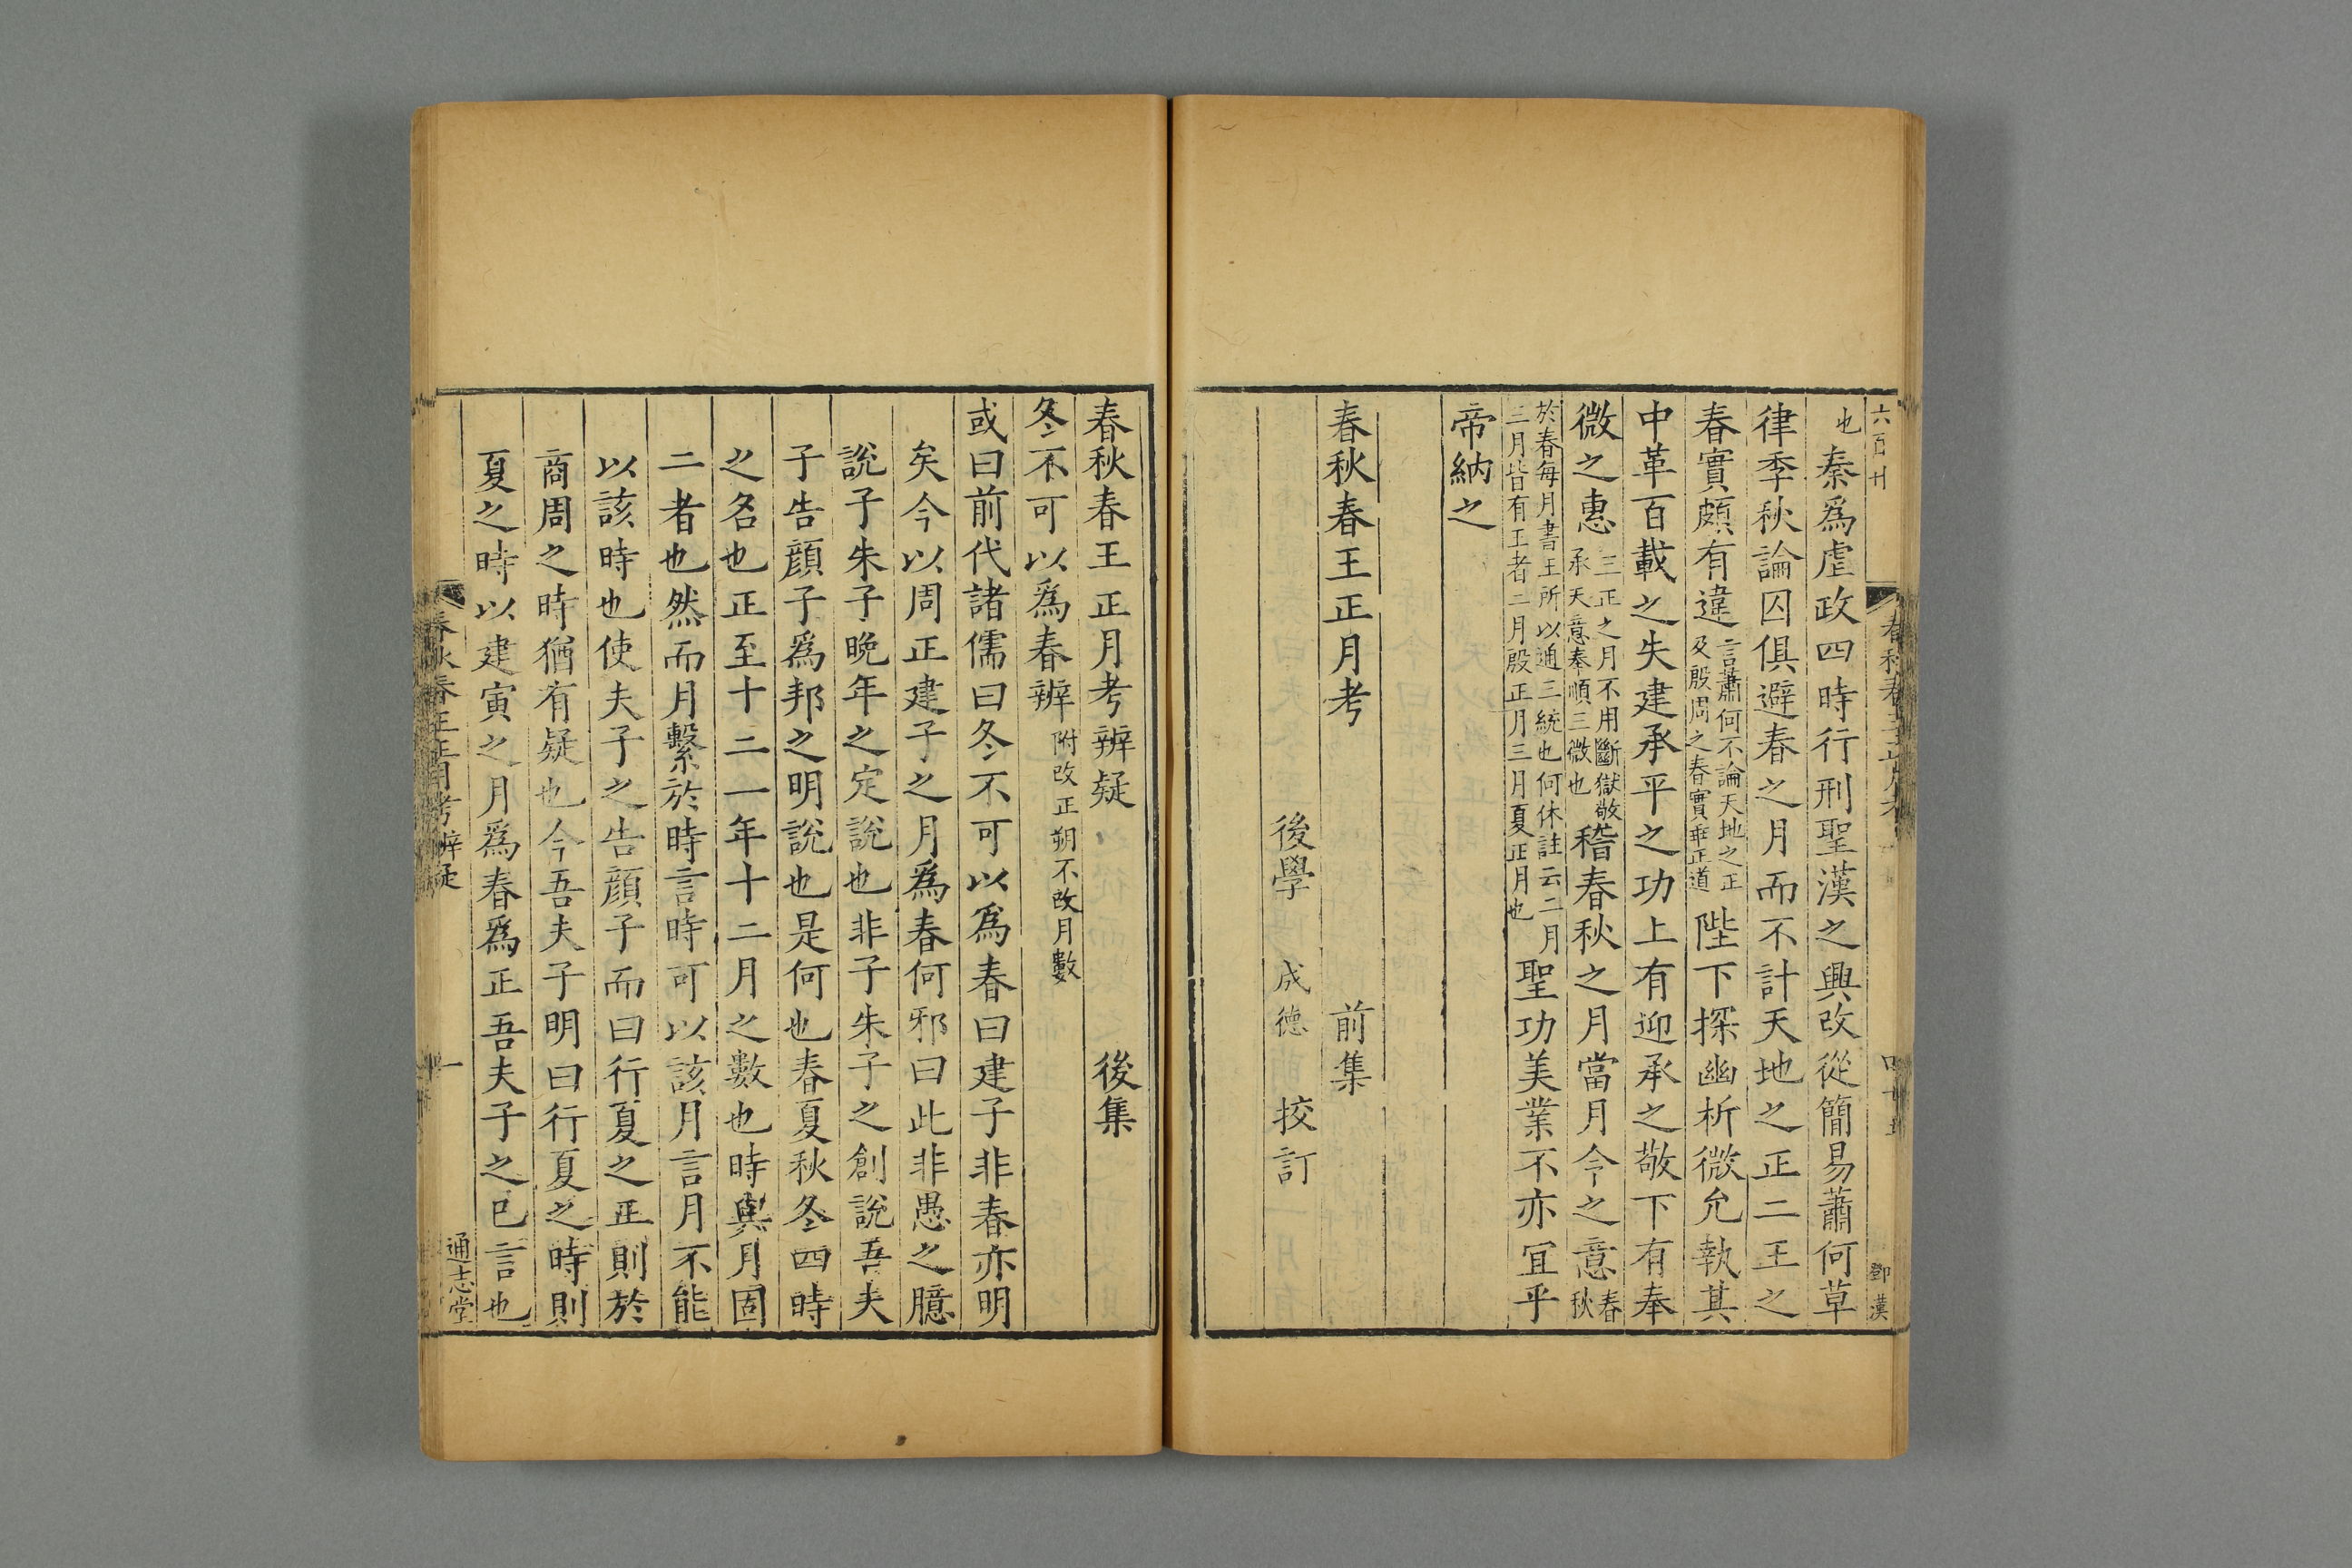 六百廿
鄧漢
也秦爲虐政四時行刑聖漢之興改從簡易蕭何草
律季秋論囚俱避春之月而不計天地之正二王之
春實頗有違言蕭何不論天地之正及殷周之春實乖正道陛下探幽析微允執其
中革百載之失建承平之功上有迎承之敬下有奉
微之惠三正之月不用斷獄敬承天意奉順三微也稽春秋之月當月令之意春秋
於春每月書王所以通三統也何休註云二月三月皆有王者二月殷正月三月夏正月也聖功美業不亦宜乎
帝納之
春秋春王正月考 前集
後學 成德 挍訂
春秋春王正月考辨疑 後集
冬不可以爲春辨附改正朔不改月數
或曰前代諸儒曰冬不可以爲春曰建子非春亦明
矣今以周正建子之月爲春何邪曰此非愚之臆
說子朱子晚年之定說也非子朱子之創說吾夫
子告顏子爲邦之明說也是何也春夏秋冬四時
之名也正至十二一年十二月之數也時與月固
二者也然而月繫於時言時可以該月言月不能
以該時也使夫子之告顏子而曰行夏之正則於
商周之時猶有疑也今吾夫子明曰行夏之時則
夏之時以建寅之月爲春爲正吾夫子之已言也
春秋春王正月考辨疑
一
通志堂